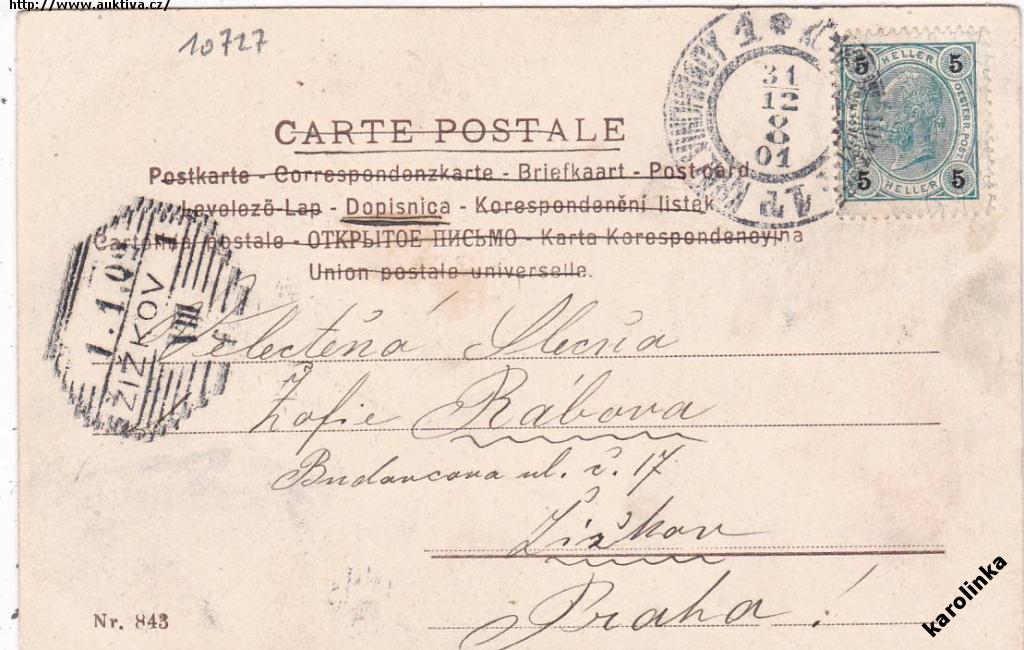 http://www.auktiva.cz/
10727
31
12
8
01
5 HELLER 5
5 HELLER 5
CARTE POSTALE
Postkarte - Correspondenzkarte - Briefkaart - Post card
Levelezö-Lap - Dopisnica - Korespondenční listek
Cartolina postale - ОТКРЫТОЕ ПИСЬМО - Karta Korespondencyjna
Union postale universelle.
ŽIŽKOV 1
VIII
Velectěná Slečna
Žofie Rábova
ul. č. 17
Žižkov
Praha!
Nr. 843
karolinka